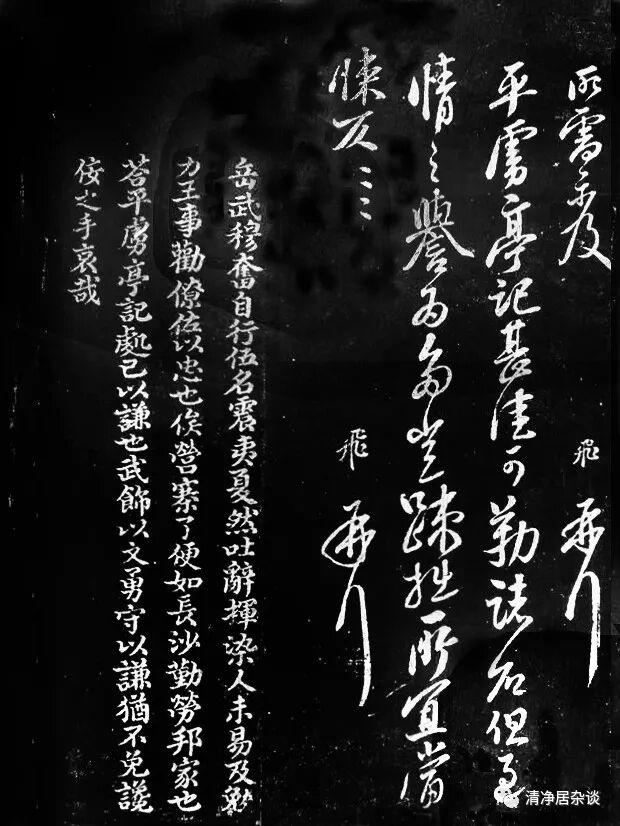 所需示及 飛 再拜
平虜亭記甚佳可勒諸石但過
情之譽為多豈踈拙所宜當
悚仄〻〻 飛 再拜
岳武穆奮自行伍名震夷夏然吐辭揮染人未易及勠
力王事勸僚佐以忠也俟營寨了便如長沙勤勞邦家也
荅平虜亭記處己以謙也武飾以文勇守以謙猶不免讒
佞之手哀哉
清净居杂谈